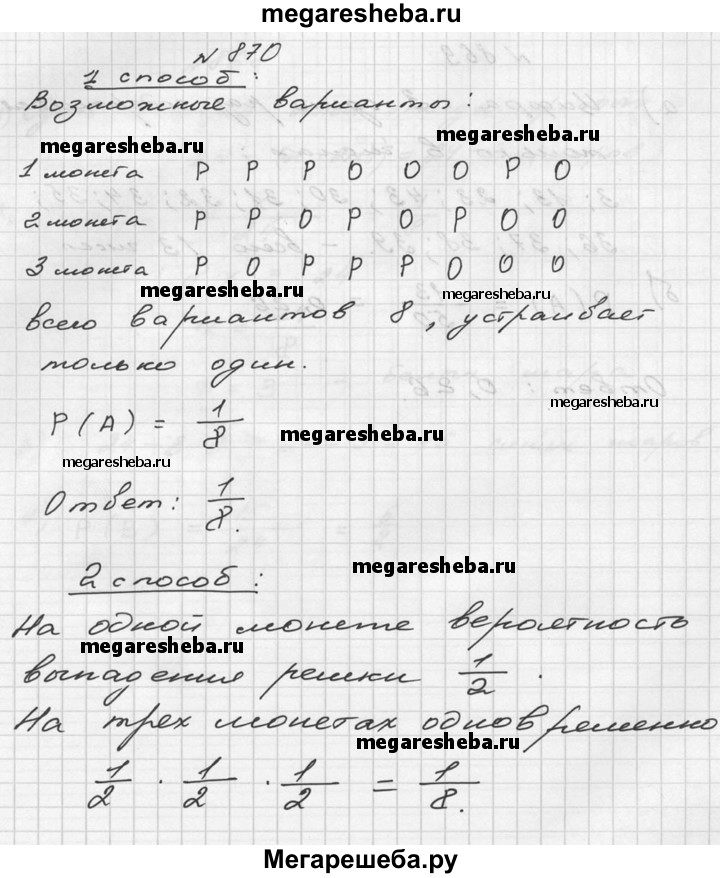 megaresheba.ru
№ 870
1 способ:
Возможные варианты:
megaresheba.ru
megaresheba.ru
1 монета Р Р Р О О О Р О
2 монета Р Р О Р О Р О О
3 монета Р О Р Р Р О О О
megaresheba.ru
megaresheba.ru
всего вариантов 8, устраивает
только один.
megaresheba.ru
P(A) = 1/8
megaresheba.ru
megaresheba.ru
Ответ: 1/8.
megaresheba.ru
2 способ:
На одной монете вероятность
megaresheba.ru
выпадения решки 1/2.
На трех монетах одновременно
megaresheba.ru
1/2 · 1/2 · 1/2 = 1/8.
Мегарешеба.ру